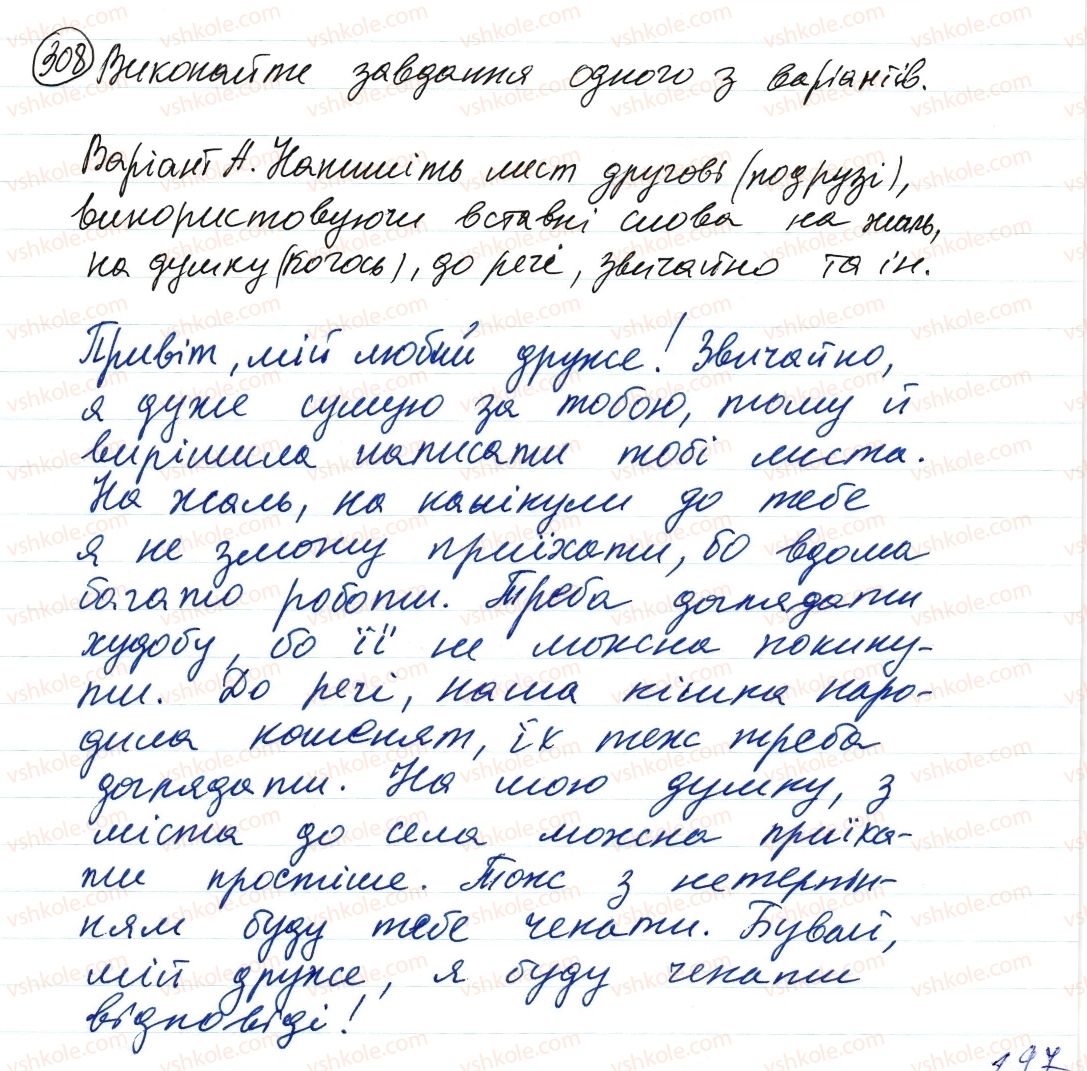 308 Виконайте завдання одного з варіантів.
Варіант А. Напишіть лист другові (подрузі),
використовуючи вставні слова на жаль,
на думку (когось), до речі, звичайно та ін.
Привіт, мій любий друже! Звичайно,
я дуже сумую за тобою, тому й
вирішила написати тобі листа.
На жаль, на канікули до тебе
я не зможу приїхати, бо вдома
багато роботи. Треба доглядати
худобу, бо її не можна покину-
ти. До речі, наша кішка наро-
дила кошенят, їх теж треба
доглядати. На мою думку, з
міста до села можна приїха-
ти простіше. Тож з нетерпін-
ням буду тебе чекати. Бувай,
мій друже, я буду чекати
відповіді!
197